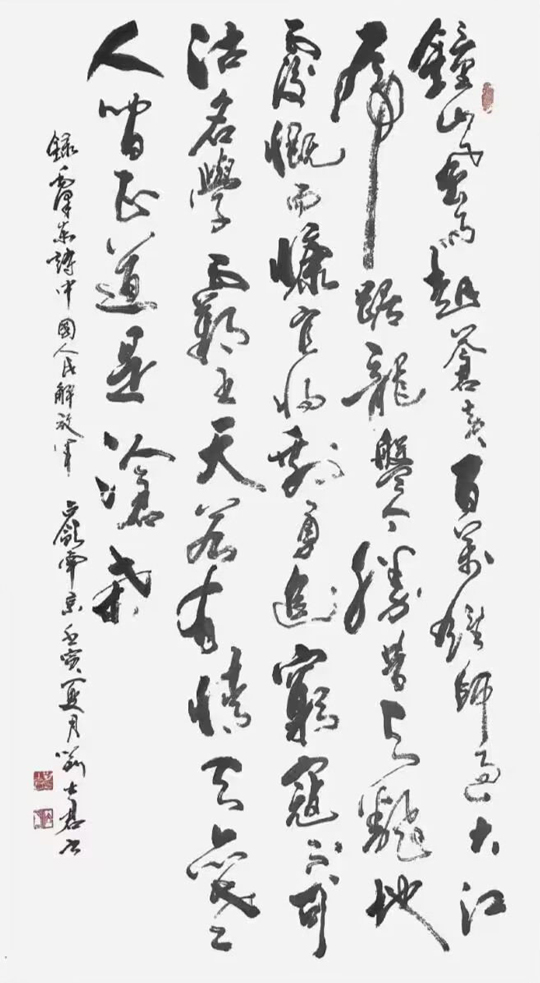 鐘山風雨起蒼黃百萬雄師過大江
虎踞龍盤今勝昔天翻地
覆慨而慷宜將剩勇追窮寇不可
沽名學霸王天若有情天亦老
人間正道是滄桑
録毛澤東詩中國人民解放軍占領南京壬寅夏月劉士書